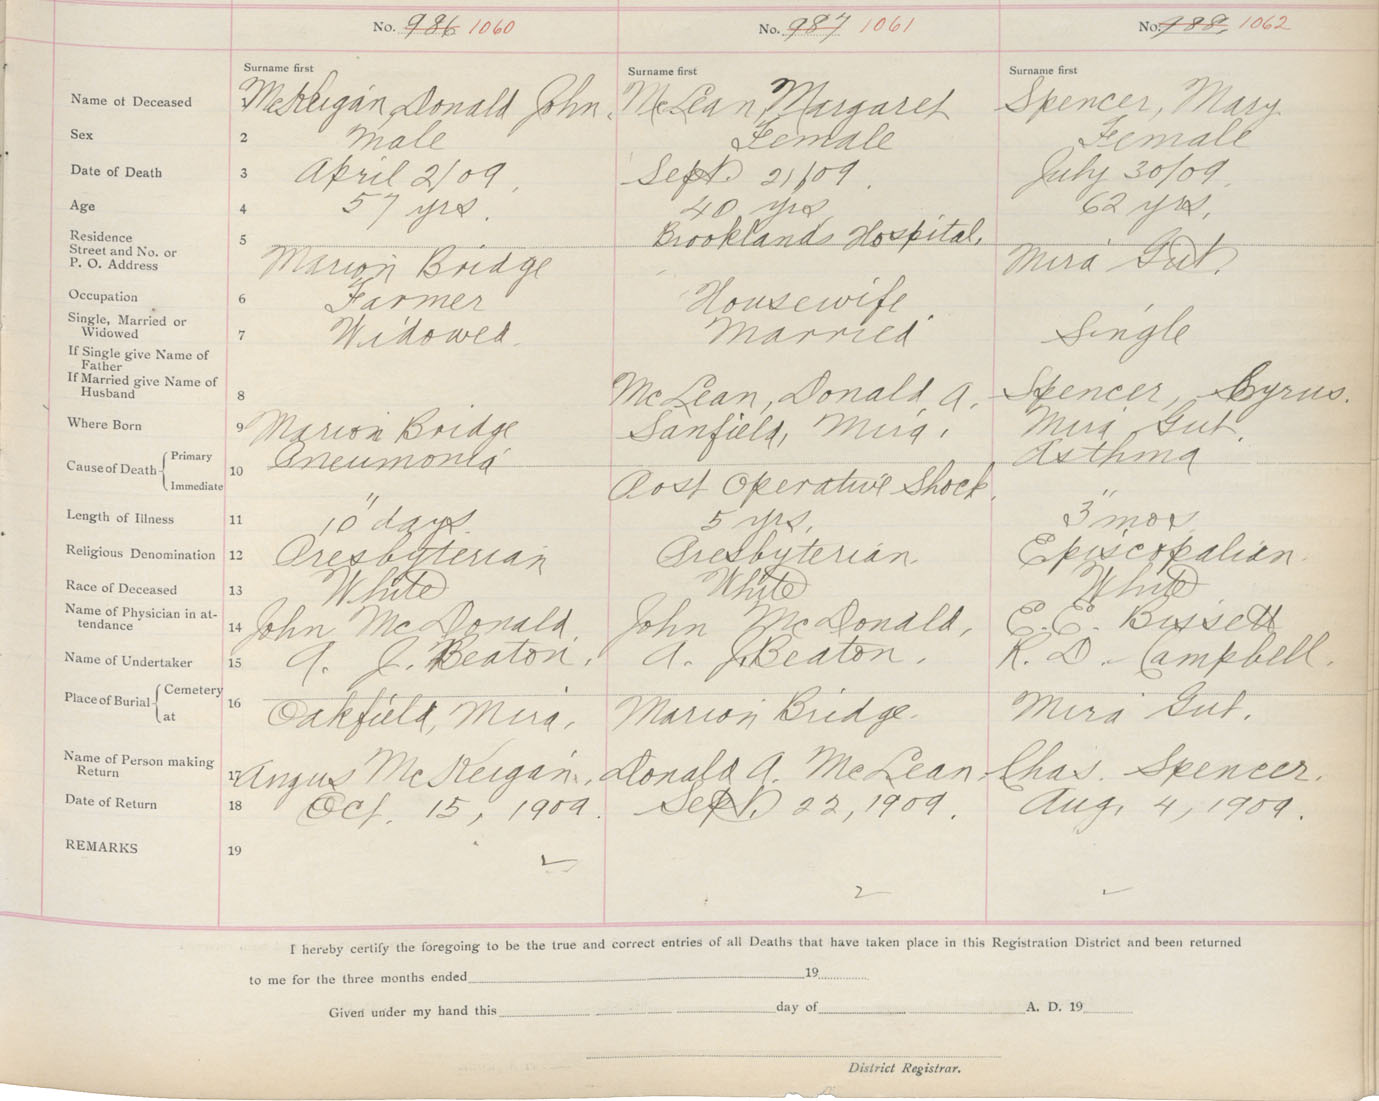 No. 986 1060 No. 987 1061 No. 988, 1062
Surname first Surname first Surname first
Name of Deceased McKeigan, Donald John. McLean, Margaret Spencer, Mary
Sex 2 Male Female Female
Date of Death 3 April 2/09. Sept. 21/09. July 30/09.
Age 4 57 yrs. 40 yrs 62 yrs.
Residence
Street and No. or
P. O. Address 5 Marion Bridge Brooklands Hospital. Mira Gut.
Occupation 6 Farmer Housewife
Single, Married or
Widowed 7 Widowed. Married Single
If Single give Name of
Father
If Married give Name of
Husband 8 McLean, Donald A. Spencer, Cyrus.
Where Born 9 Marion Bridge Sanfield, Mira. Mira Gut.
Cause of Death { Primary 10 Pneumonia Asthma
Immediate " Post Operative Shock. "
Length of Illness 11 10 days 5 yrs. 3 mos
Religious Denomination 12 Presbyterian Presbyterian. Episcopalian.
Race of Deceased 13 White White White
Name of Physician in at-
tendance 14 John McDonald. John McDonald. E. E. Bissett
Name of Undertaker 15 A. J. Beaton. A. J. Beaton. R. D. Campbell.
Place of Burial { Cemetery
at 16 Oakfield, Mira. Marion Bridge. Mira Gut.
Name of Person making
Return 17 Angus McKeigan. Donald A. McLean Chas. Spencer.
Date of Return 18 Oct. 15, 1909. Sept. 22, 1909. Aug. 4, 1909.
REMARKS 19
I hereby certify the foregoing to be the true and correct entries of all Deaths that have taken place in this Registration District and been returned
to me for the three months ended 19
Given under my hand this day of A. D. 19
District Registrar.